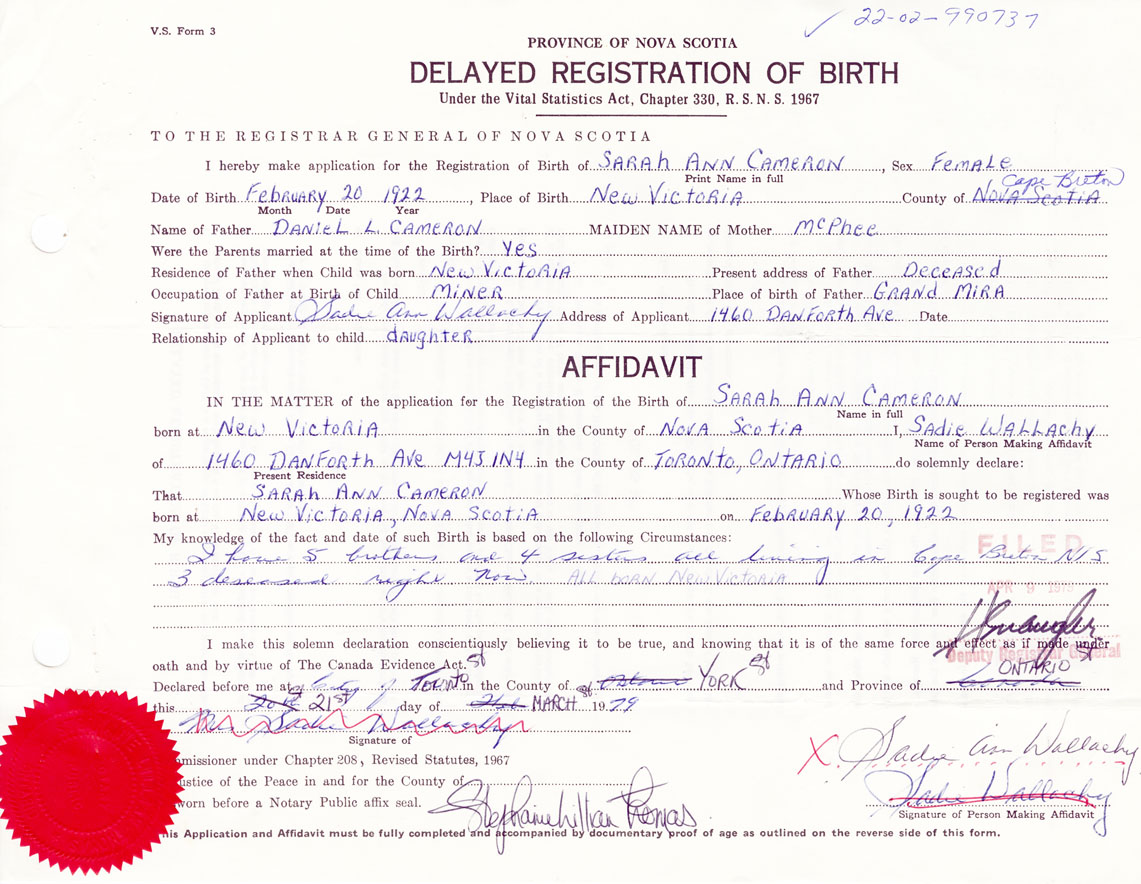 V.S. Form 3
22-02-990737
PROVINCE OF NOVA SCOTIA
DELAYED REGISTRATION OF BIRTH
Under the Vital Statistics Act, Chapter 330, R.S.N.S. 1967
TO THE REGISTRAR GENERAL OF NOVA SCOTIA
I hereby make application for the Registration of Birth of SARAH ANN CAMERON, Sex FEMALE
Print Name in full
Cape Breton
Date of Birth FEBRUARY 20 1922, Place of Birth NEW VICTORIA County of NOVA SCOTIA
Month Date Year
Name of Father DANIEL L. CAMERON MAIDEN NAME of Mother McPhee
Were the Parents married at the time of the Birth? YES
Residence of Father when Child was born NEW VICTORIA Present address of Father DECEASED
Occupation of Father at Birth of Child MINER Place of birth of Father GRAND MIRA
Signature of Applicant Sadie Ann Wallachy Address of Applicant 1460 DANFORTH AVE Date
Relationship of Applicant to child daughter
AFFIDAVIT
IN THE MATTER of the application for the Registration of the Birth of SARAH ANN CAMERON
Name in full
born at NEW VICTORIA in the County of NOVA SCOTIA I, SADIE WALLACHY
Name of Person Making Affidavit
of 1460 DANFORTH AVE M4J 1N4 in the County of TORONTO, ONTARIO do solemnly declare:
Present Residence
That SARAH ANN CAMERON Whose Birth is sought to be registered was
born at NEW VICTORIA, NOVA SCOTIA on FEBRUARY 20, 1922
My knowledge of the fact and date of such Birth is based on the following Circumstances:
FILED
I have 5 brothers and 4 sisters all living in Cape Breton N.S.
3 deseased right now. ALL BORN NEW VICTORIA
APR 9 1979
I make this solemn declaration conscientiously believing it to be true, and knowing that it is of the same force and effect as if made under
oath and by virtue of The Canada Evidence Act. st
Deputy Registrar General
ONTARIO st
Declared before me at st City of TORONTO in the County of st YORK st and Province of
this 21st day of MARCH 1979
Mrs Sadie Wallachy
Signature of
mmissioner under Chapter 208, Revised Statutes, 1967
X Sadie Ann Wallachy
ustice of the Peace in and for the County of
worn before a Notary Public affix seal.
Sadie Wallachy
Signature of Person Making Affidavit
is Application and Affidavit must be fully completed and accompanied by documentary proof of age as outlined on the reverse side of this form.